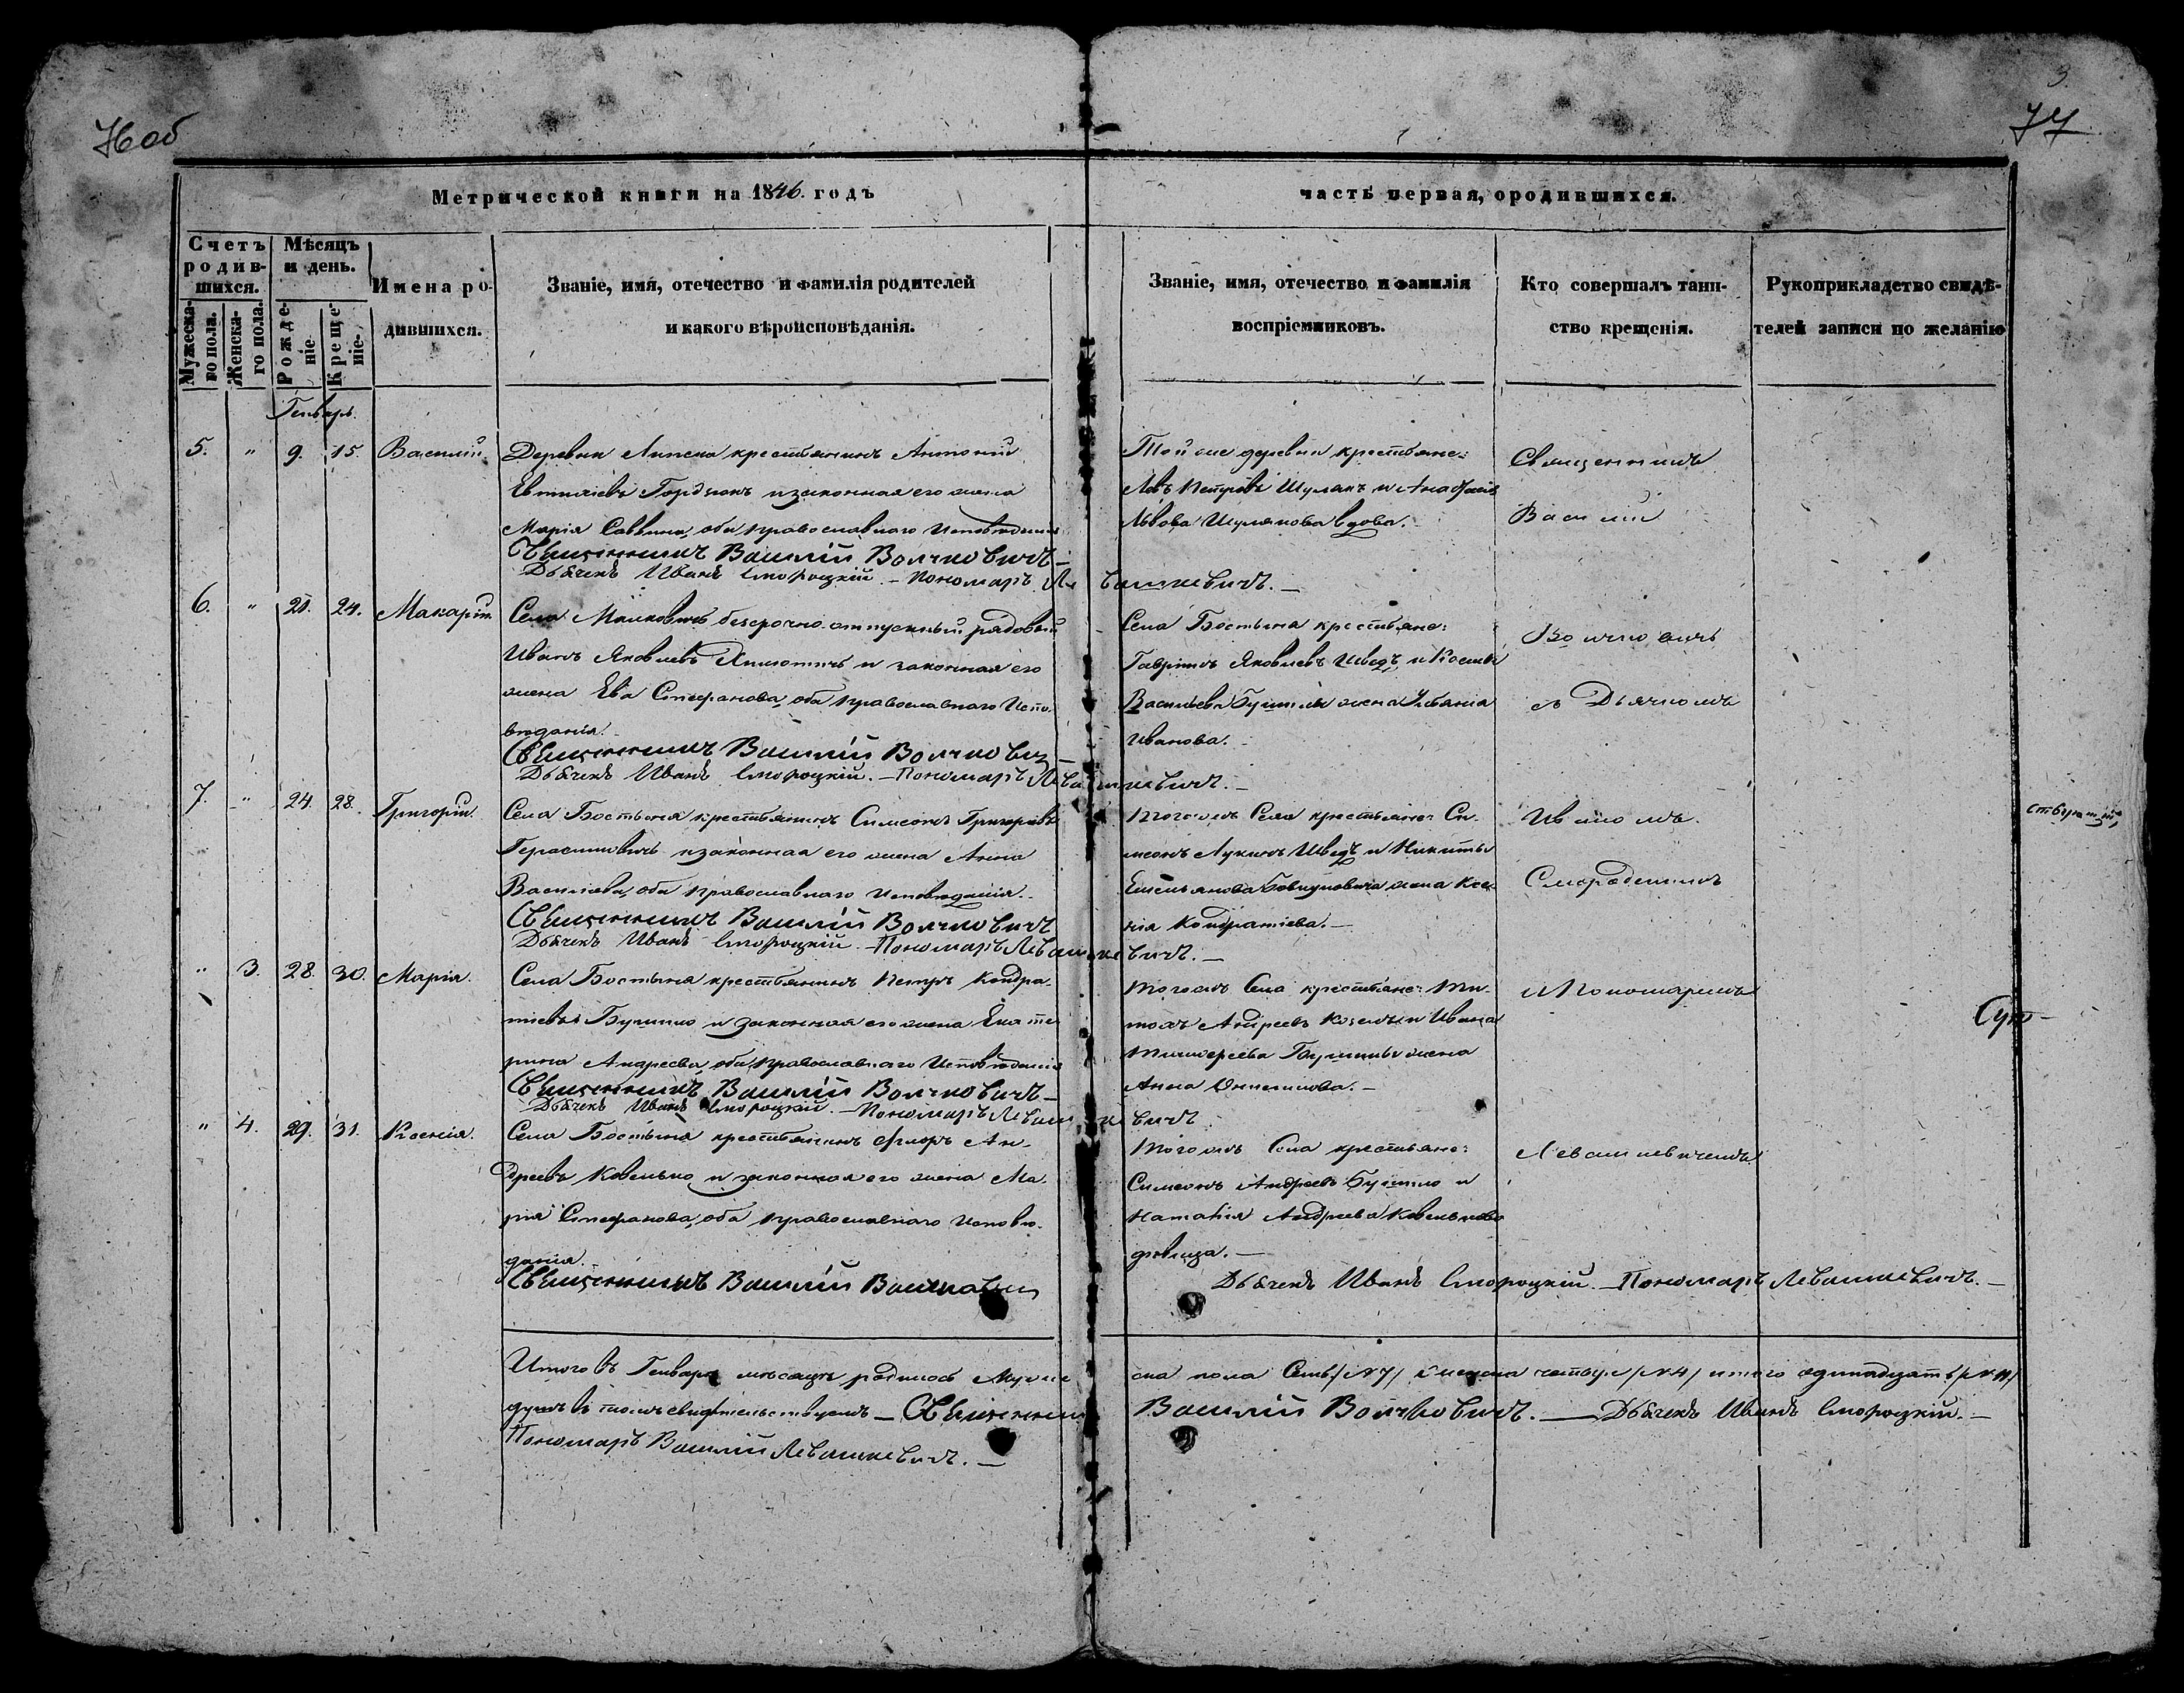 76 об
3.
77
Метрической книги на 1846. годъ
часть первая, ородившихся.
Счетъ родив-шихся.
Мѣсяцъ и день.
Имена ро-
дившихся.
Званіе, имя, отечество и фамилія родителей
и какого вѣроисповѣданія.
Званіе, имя, отечество и фамилія
воспріемниковъ.
Кто совершалъ таин-
ство крещенія.
Рукоприкладство свидѣ-
телей записи по желанію
Мужеска-го пола.
Женска-го пола.
Рожде-ніе
Креще-ніе.
Генварь.
5. " 9. 15. Василій
Деревни Липска крестьянинъ Антоній
Гордіюкъ и законная его жена
Марія Саввина, оба православнаго исповѣданія
Священникъ Василій Волчковичъ –
Дьячекъ Иванъ Смороцкій. – Пономарь Левашкевичъ. –
Той же деревни крестьяне:
Левъ Петровъ Шулякъ и
Львова Шулякова вдова.
Священникъ
Василій
6. " 21. 24. Макарій
Села безсрочно-отпускный рядовый
Иванъ Яковлевъ и законная его
жена Ева Стефанова, оба православнаго Испо-
вѣданія.
Священникъ Василій Волчкович –
Дьячекъ Иванъ Смороцкій. – Пономарь Левашкевичъ. –
Села Бостыня крестьяне:
Гавріилъ Яковлевъ Шведъ и
Васильева жена
Иванова.
Волчковичъ
съ Дьячкомъ
7. " 24. 28. Григорій.
Села Бостыня крестьянинъ Симеонъ Григорьевъ
Герасимовичъ и законная его жена Анна
Васильева, оба православнаго Исповѣданія.
Священникъ Василій Волчковичъ
Дьячекъ Иванъ Смороцкій. – Пономарь Левашкевичъ. –
Тогожъ Села крестьяне: Си-
меонъ Лукинъ Шведъ и Никиты
Емельянова жена Ксе-
нія Кондратіева. –
Иваномъ
" 3. 28. 30. Марія.
Села Бостыня крестьянинъ Петръ Кондра-
тіевъ Бушило и законная его жена Екате-
рина Андреева, оба православнаго Исповѣданія
Священникъ Василій Волчковичъ –
Дьячекъ Иванъ Смороцкій. – Пономарь Левашкевичъ
Тогожъ Села крестьяне: Ти-
Андреевъ и Ивана
жена
Анна –
и Пономаремъ
" 4. 29. 31. Ксенія.
Села Бостыня крестьянинъ Флоръ Ан-
дреевъ Ковенько и законная его жена Ма-
рія Стефанова, оба православнаго исповѣ-
данія.
Священникъ Василій
Тогожъ Села крестьяне:
Симеонъ Андреевъ Бушило и
Наталія Андреева Ковенькова
дѣвица. –
Дьячекъ Иванъ Смороцкій. – Пономарь Левашкевичъ. –
Левашкевичемъ
Итого въ Генварѣ мѣсяцѣ родилось Муже
ска пола Семь /№ 7/ женска четыре /№ 4/ итого одинадцать /№ 11/
душъ въ томъ свидѣтельствуемъ – Священникъ Василій Волчковичъ. – Дьячекъ Иванъ Смороцкій. –
Пономарь Василій Левашкевичъ. –